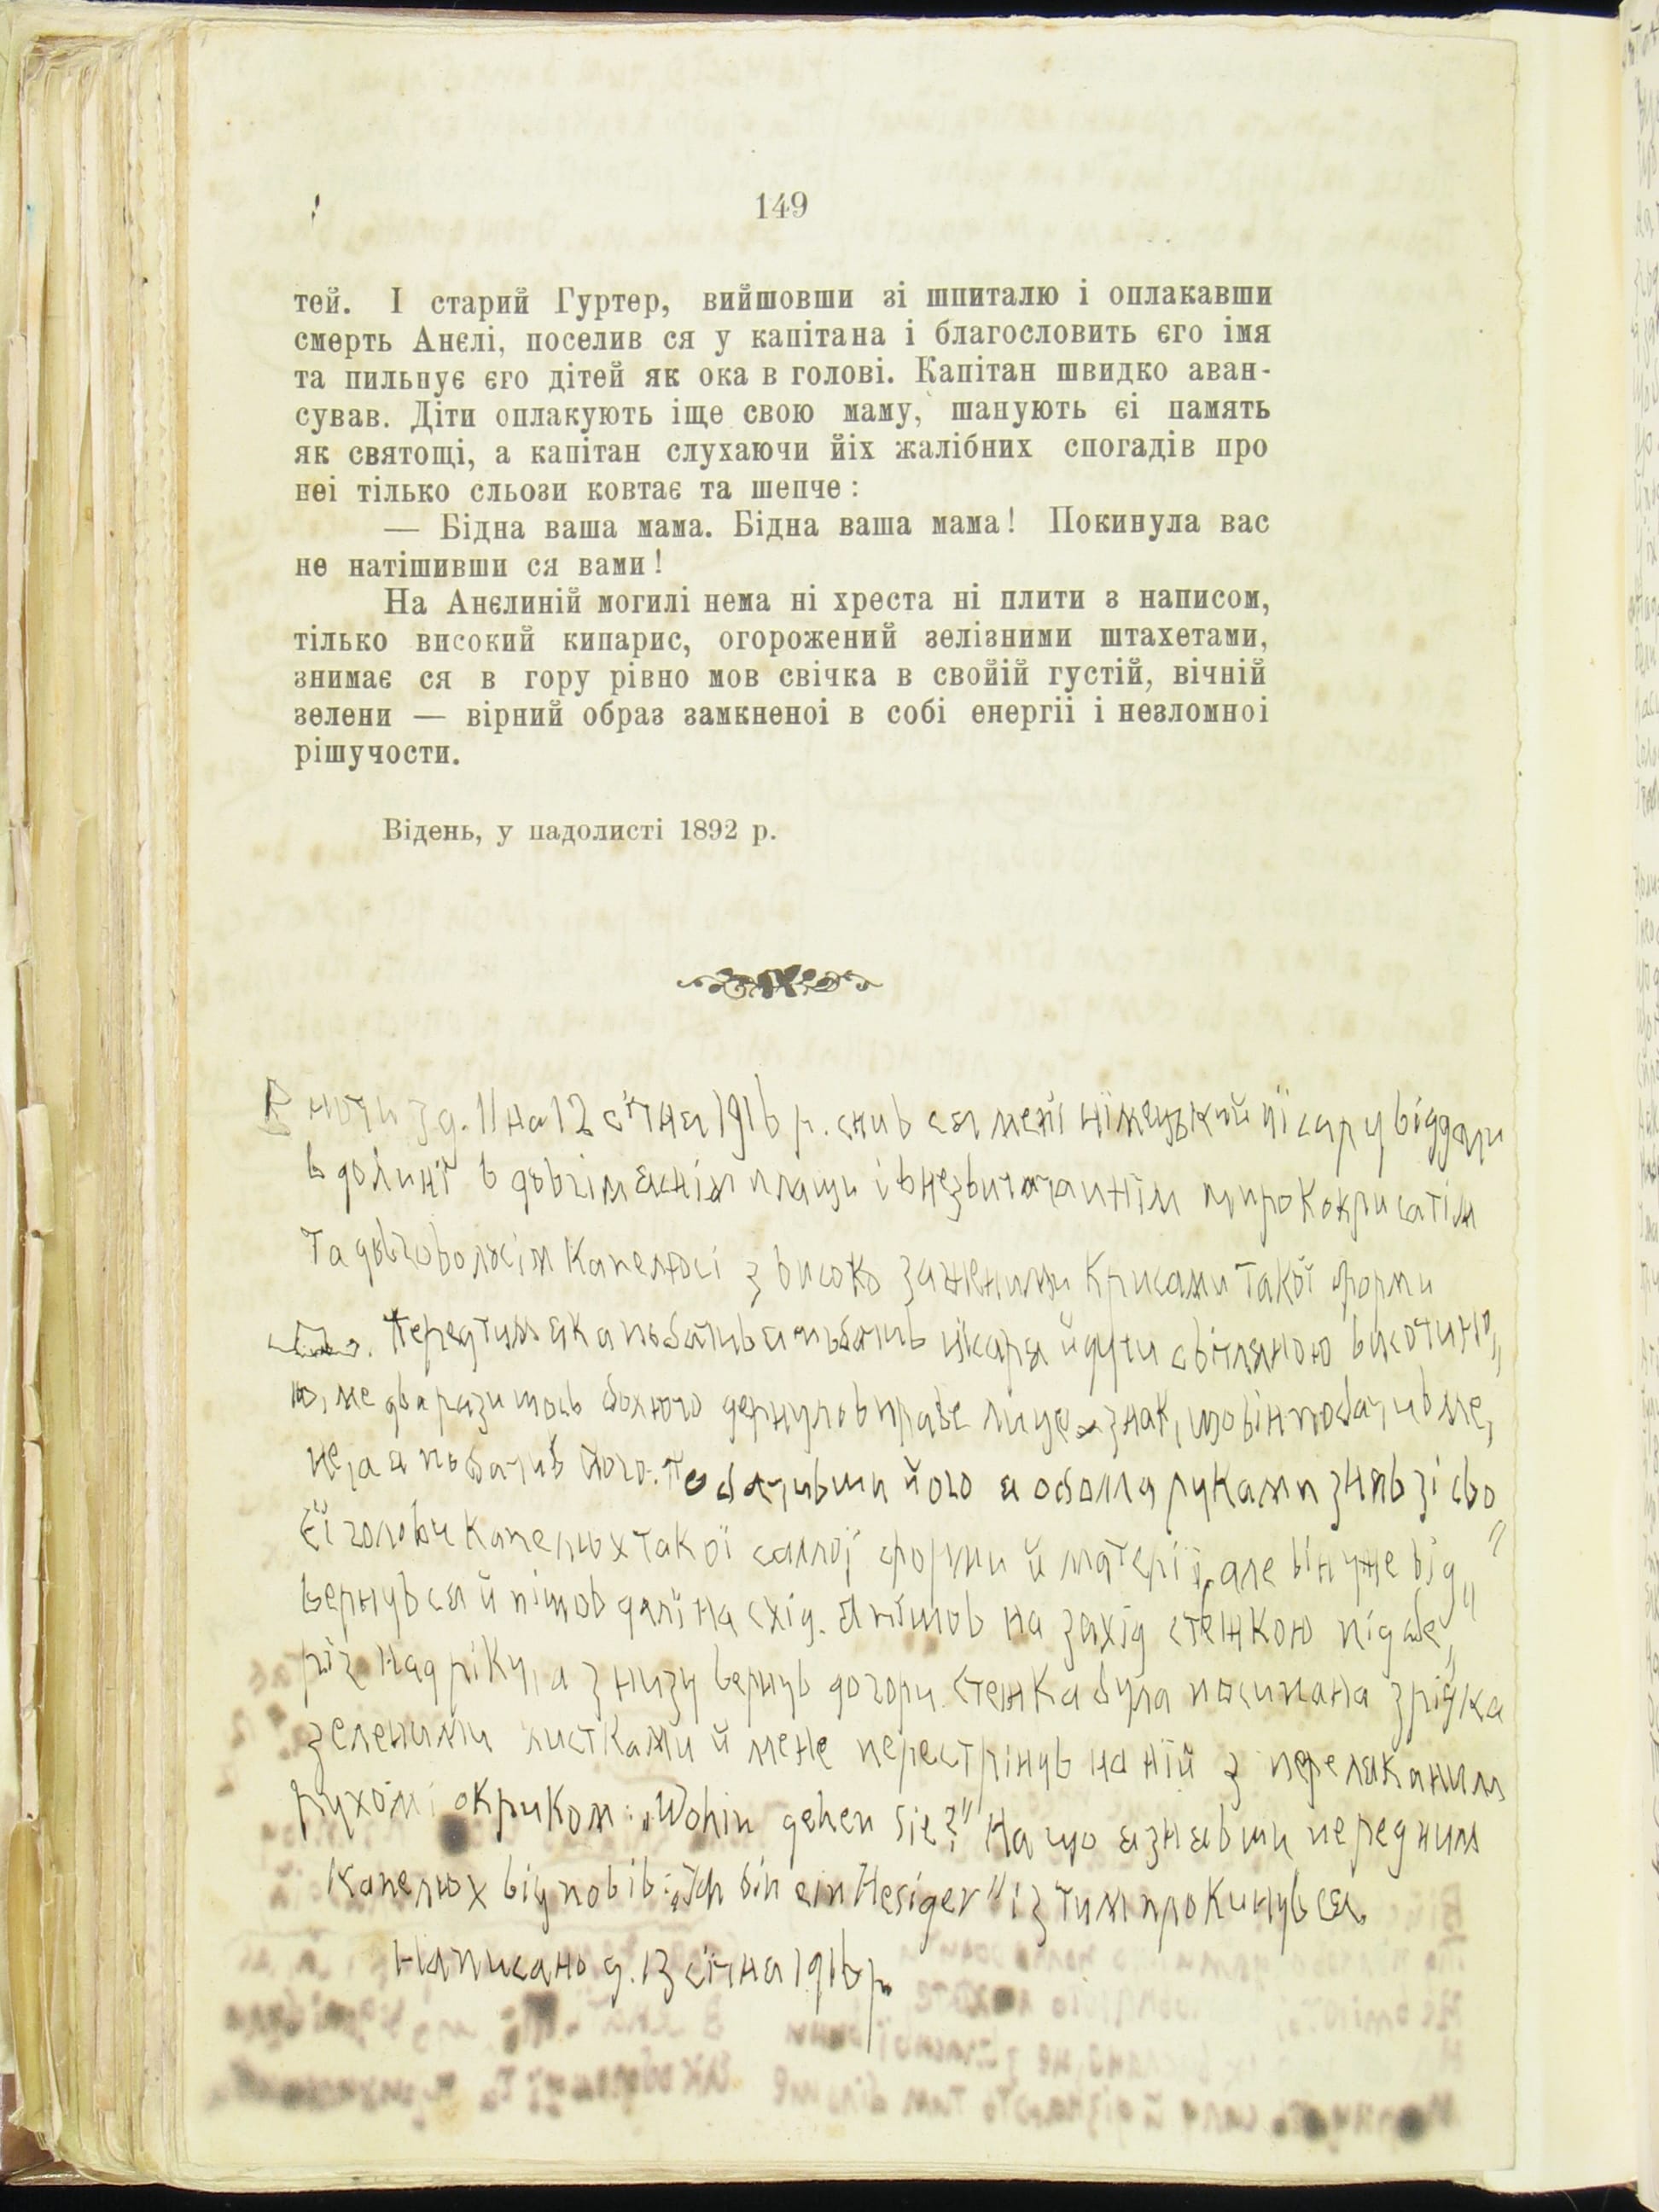 149
тей. І старий Гуртер, вийшовши зі шпиталю і оплакавши
смерть Анєлі, поселив ся у капітана і благословить єго імя
та пильнує єго дітей як ока в голові. Капітан швидко аван-
сував. Діти оплакують іще свою маму, шанують єі память
як святощі, а капітан слухаючи йіх жалібних спогадів про
неі тілько сльози ковтає та шепче:
— Бідна ваша мама. Бідна ваша мама! Покинула вас
не натішивши ся вами!
На Анєлиній могилі нема ні хреста ні плити з написом,
тілько високий кипарис, огорожений зелізними штахетами,
знимає ся в гору рівно мов свічка в свойій густій, вічній
зелени — вірний образ замкненоі в собі енергіі і незломноі
рішучости.
Відень, у падолисті 1892 р.
В ночи з д. 11 на 12 січня 1916 р. снив ся мені німецький цісар у віддали
в долині в довгім яснім плащи і в незвичайнім ширококрисатім
та довговолосім капелюсі з високо криcами такої форми
Перед тим як я побачив цісаря йдучи високиною
ме два рази щось болючо дернуло в праве лице знак, що він побачив ме,
не, а я побачив його. Побачивши його я обома руками зняв зі сво
єї голови капелюх такої самої форми й матерії, але він уже від„
вернув ся й пішов далї на схід. Я пішов на захід стежкою під бе„
ріг над ріку, а з низу вернув догори. Стежка була посипана зрідка
зеленими листками й мене перестрінув на ній з переляканим
рухом і окриком: „Wohin gehen Sie?" На що я знявши перед ним
капелюх відповів: „Ich bin ein Hesiger" і з тим прокинув ся.
Написано д. 13 січня 1916 р.